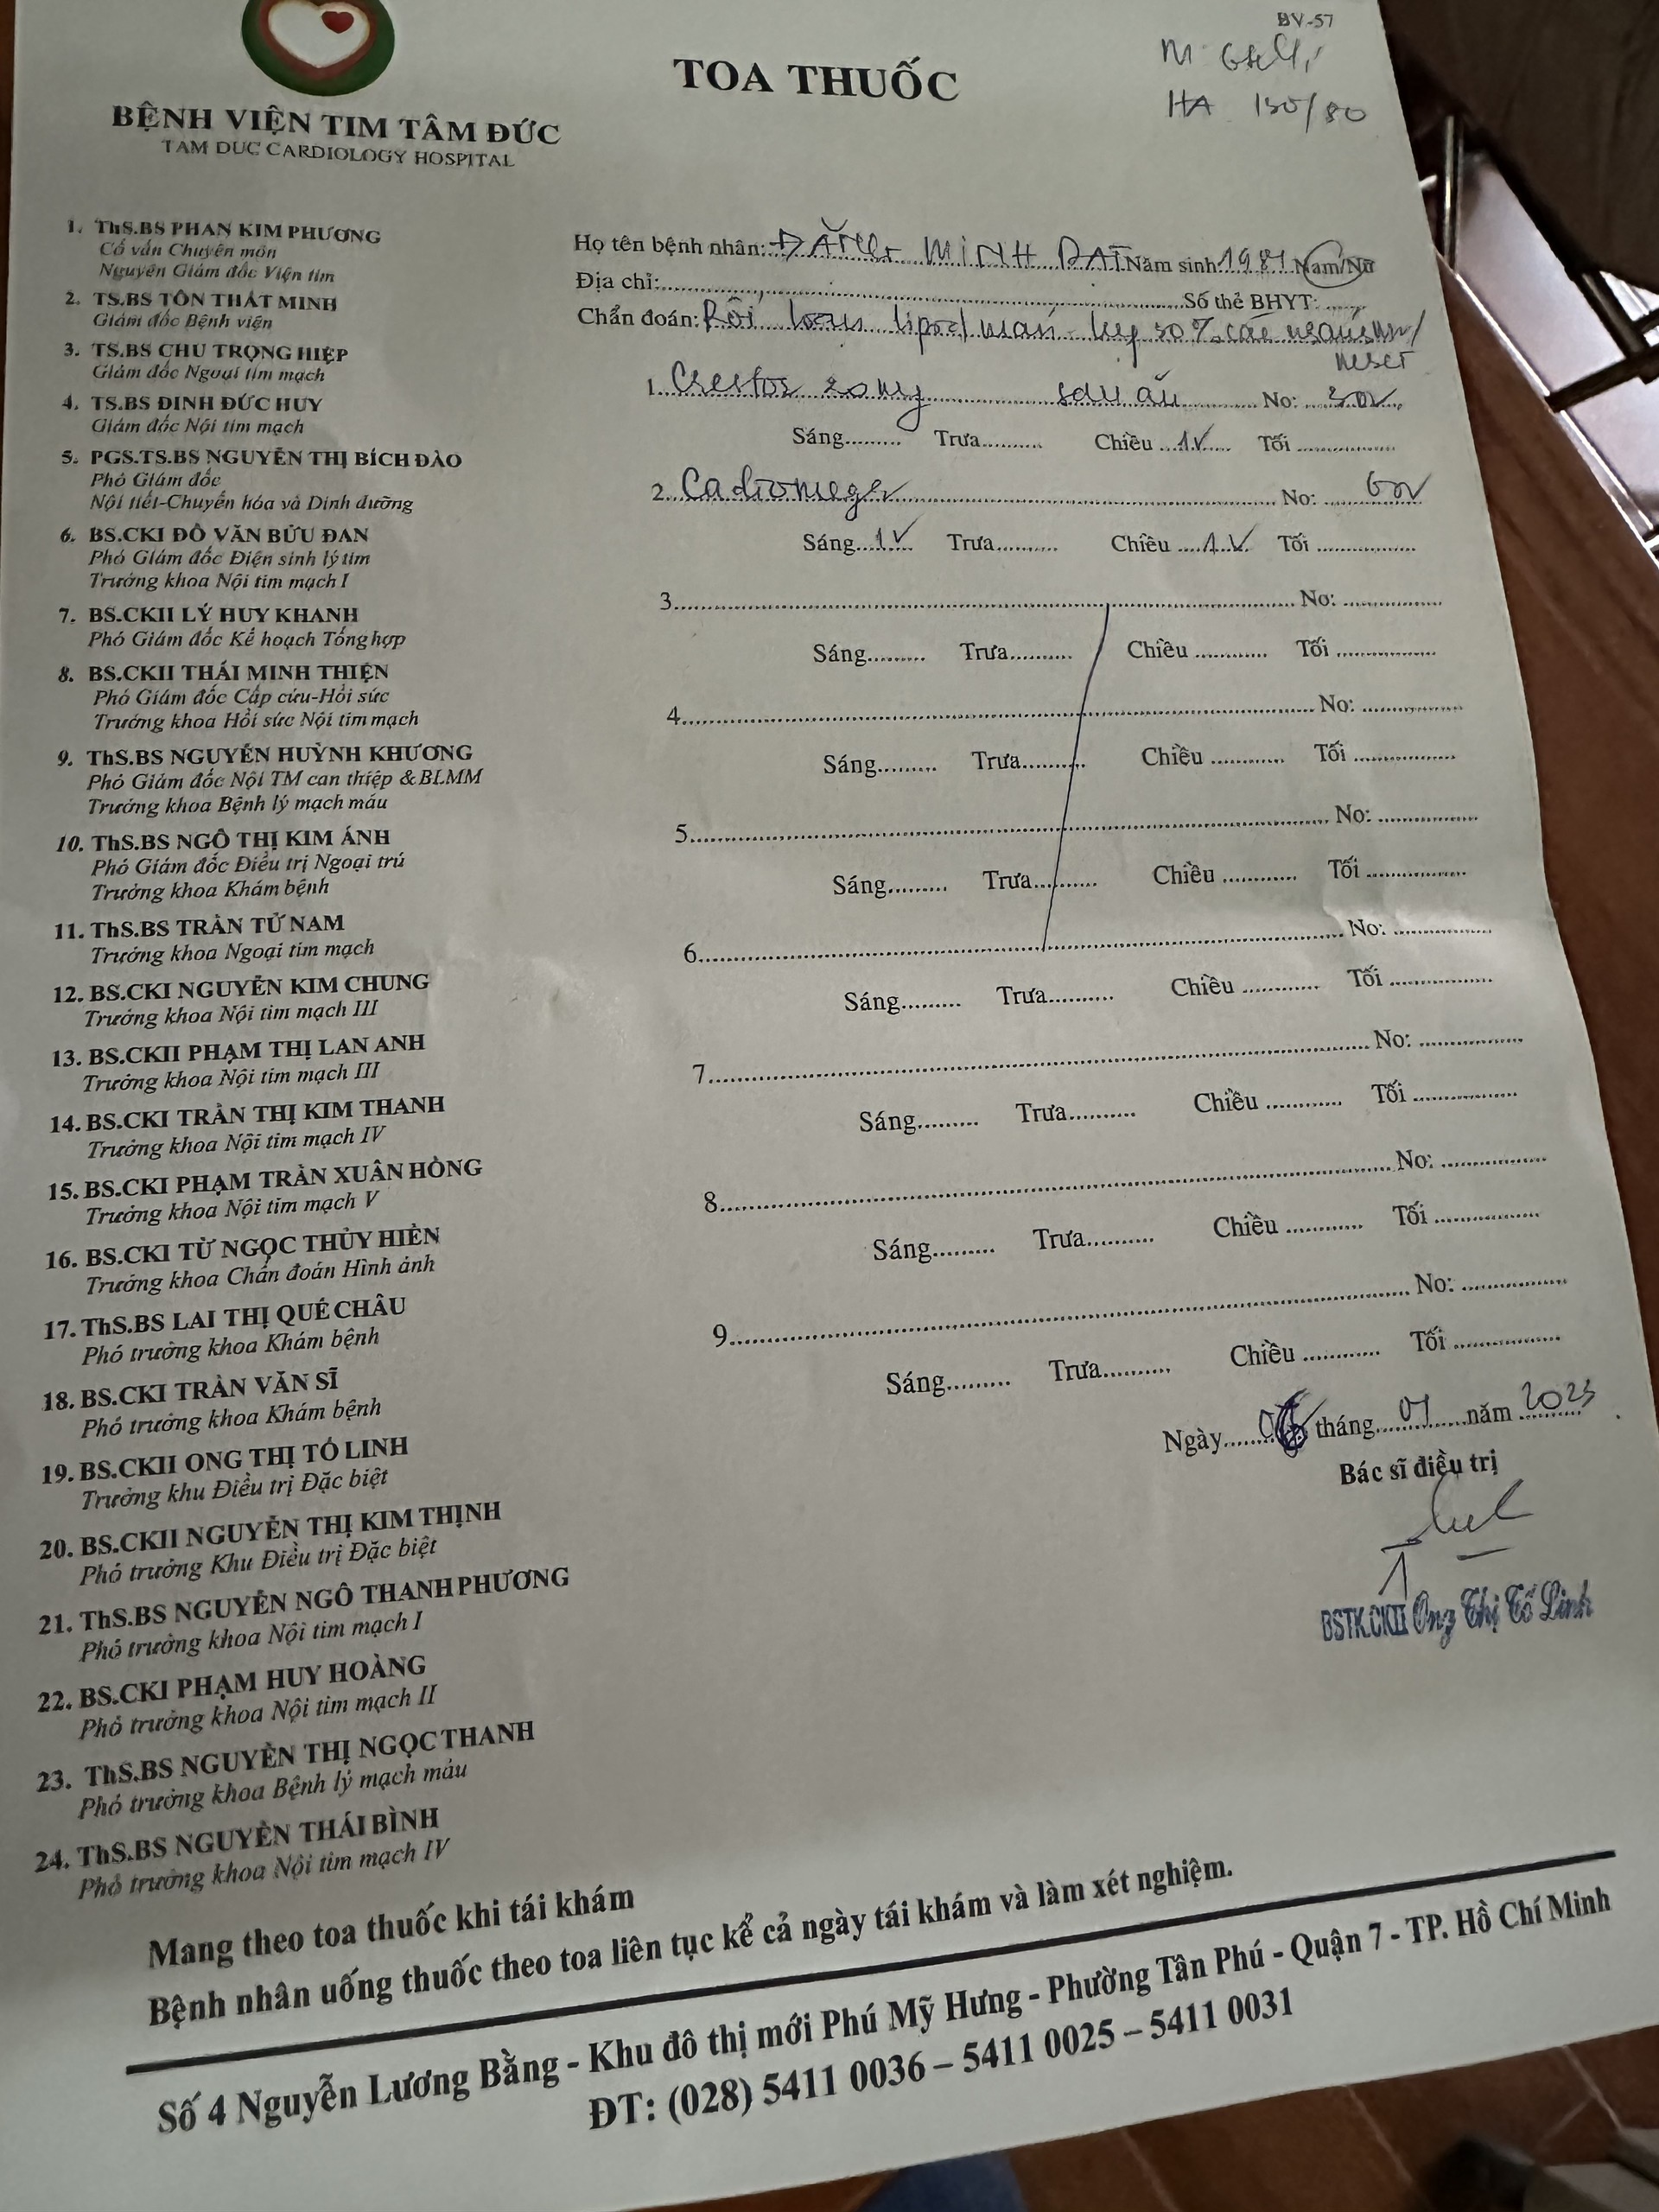 BV-57
TOA THUỐC
HA 150/80
BỆNH VIỆN TIM TÂM ĐỨC
TAM DUC CARDIOLOGY HOSPITAL
1. ThS.BS PHAN KIM PHƯƠNG
Cố vấn Chuyên môn
Nguyên Giám đốc Viện tim
2. TS.BS TÔN THẤT MINH
Giám đốc Bệnh viện
3. TS.BS CHU TRỌNG HIỆP
Giám đốc Ngoại tim mạch
4. TS.BS ĐINH ĐỨC HUY
Giám đốc Nội tim mạch
5. PGS.TS.BS NGUYỄN THỊ BÍCH ĐÀO
Phó Giám đốc
Nội tiết-Chuyển hóa và Dinh dưỡng
6. BS.CKI ĐỖ VĂN BỬU ĐAN
Phó Giám đốc Điện sinh lý tim
Trưởng khoa Nội tim mạch I
7. BS.CKII LÝ HUY KHANH
Phó Giám đốc Kế hoạch Tổng hợp
8. BS.CKII THÁI MINH THIỆN
Phó Giám đốc Cấp cứu-Hồi sức
Trưởng khoa Hồi sức Nội tim mạch
9. ThS.BS NGUYỄN HUỲNH KHƯƠNG
Phó Giám đốc Nội TM can thiệp & BLMM
Trưởng khoa Bệnh lý mạch máu
10. ThS.BS NGÔ THỊ KIM ÁNH
Phó Giám đốc Điều trị Ngoại trú
Trưởng khoa Khám bệnh
11. ThS.BS TRẦN TỬ NAM
Trưởng khoa Ngoại tim mạch
12. BS.CKI NGUYỄN KIM CHUNG
Trưởng khoa Nội tim mạch III
13. BS.CKII PHẠM THỊ LAN ANH
Trưởng khoa Nội tim mạch III
14. BS.CKI TRẦN THỊ KIM THANH
Trưởng khoa Nội tim mạch IV
15. BS.CKI PHẠM TRẦN XUÂN HỒNG
Trưởng khoa Nội tim mạch V
16. BS.CKI TỪ NGỌC THỦY HIỀN
Trưởng khoa Chẩn đoán Hình ảnh
17. ThS.BS LAI THỊ QUẾ CHÂU
Phó trưởng khoa Khám bệnh
18. BS.CKI TRẦN VĂN SĨ
Phó trưởng khoa Khám bệnh
19. BS.CKII ONG THỊ TỐ LINH
Trưởng khu Điều trị Đặc biệt
20. BS.CKII NGUYỄN THỊ KIM THỊNH
Phó trưởng Khu Điều trị Đặc biệt
21. ThS.BS NGUYỄN NGÔ THANH PHƯƠNG
Phó trưởng khoa Nội tim mạch I
22. BS.CKI PHẠM HUY HOÀNG
Phó trưởng khoa Nội tim mạch II
23. ThS.BS NGUYỄN THỊ NGỌC THANH
Phó trưởng khoa Bệnh lý mạch máu
24. ThS.BS NGUYỄN THÁI BÌNH
Phó trưởng khoa Nội tim mạch IV
Họ tên bệnh nhân: ĐẶNG MINH ĐẠT Năm sinh 1981 Nam/Nữ
Địa chỉ: Số thẻ BHYT:
Chẩn đoán: Rối loạn lipid máu - hẹp 30% các nhánh
1. Crestor 20mg sau ăn No: 30v
Sáng Trưa Chiều 1v Tối
2. Cadiomega No: 60v
Sáng 1v Trưa Chiều 1v Tối
3. No:
Sáng Trưa Chiều Tối
4. No:
Sáng Trưa Chiều Tối
5. No:
Sáng Trưa Chiều Tối
6. No:
Sáng Trưa Chiều Tối
7. No:
Sáng Trưa Chiều Tối
8. No:
Sáng Trưa Chiều Tối
9. No:
Sáng Trưa Chiều Tối
Ngày tháng 01 năm 2023
Bác sĩ điều trị
BSTK.CKII Ong Thị Tố Linh
Mang theo toa thuốc khi tái khám
Bệnh nhân uống thuốc theo toa liên tục kể cả ngày tái khám và làm xét nghiệm.
Số 4 Nguyễn Lương Bằng - Khu đô thị mới Phú Mỹ Hưng - Phường Tân Phú - Quận 7 - TP. Hồ Chí Minh
ĐT: (028) 5411 0036 – 5411 0025 – 5411 0031